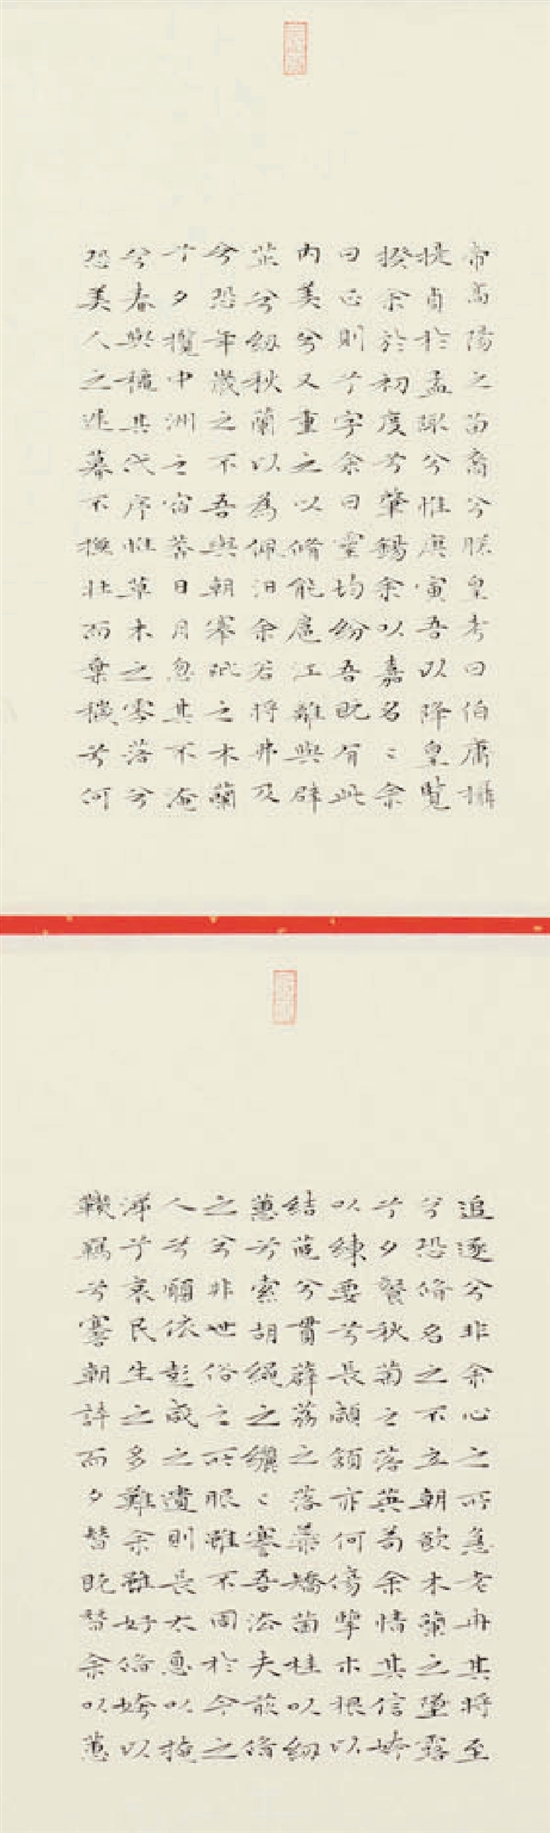 帝高陽之苗裔兮朕皇考曰伯庸攝
提貞於孟陬兮惟庚寅吾以降皇覽
揆余於初度兮肇錫余以嘉名〻余
曰正則兮字余曰靈均紛吾既有此
內美兮又重之以脩能扈江離與辟
芷兮紉秋蘭以為佩汩余若將弗及
兮恐年歲之不吾與朝搴阰之木蘭
兮夕攬中洲之宿莽日月忽其不淹
兮春與穐其代序惟草木之零落兮
恐美人之遲暮不撫壯而棄穢兮何
追逐兮非余心之所急老冉其將至
兮恐脩名之不立朝飲木蘭之墜露
兮夕餐秋菊之落英苟余情其信姱
以練要兮長顑頷亦何傷擥木根以
結茝兮貫薜荔之落蕊矯菌桂以紉
蕙兮索胡繩之纚〻謇吾法夫前脩
之兮非世俗之所服雖不周於今之
人兮願依彭咸之遺則長太息以掩
涕兮哀民生之多難余雖好脩姱以
鞿羈兮謇朝誶而夕替既替余以蕙